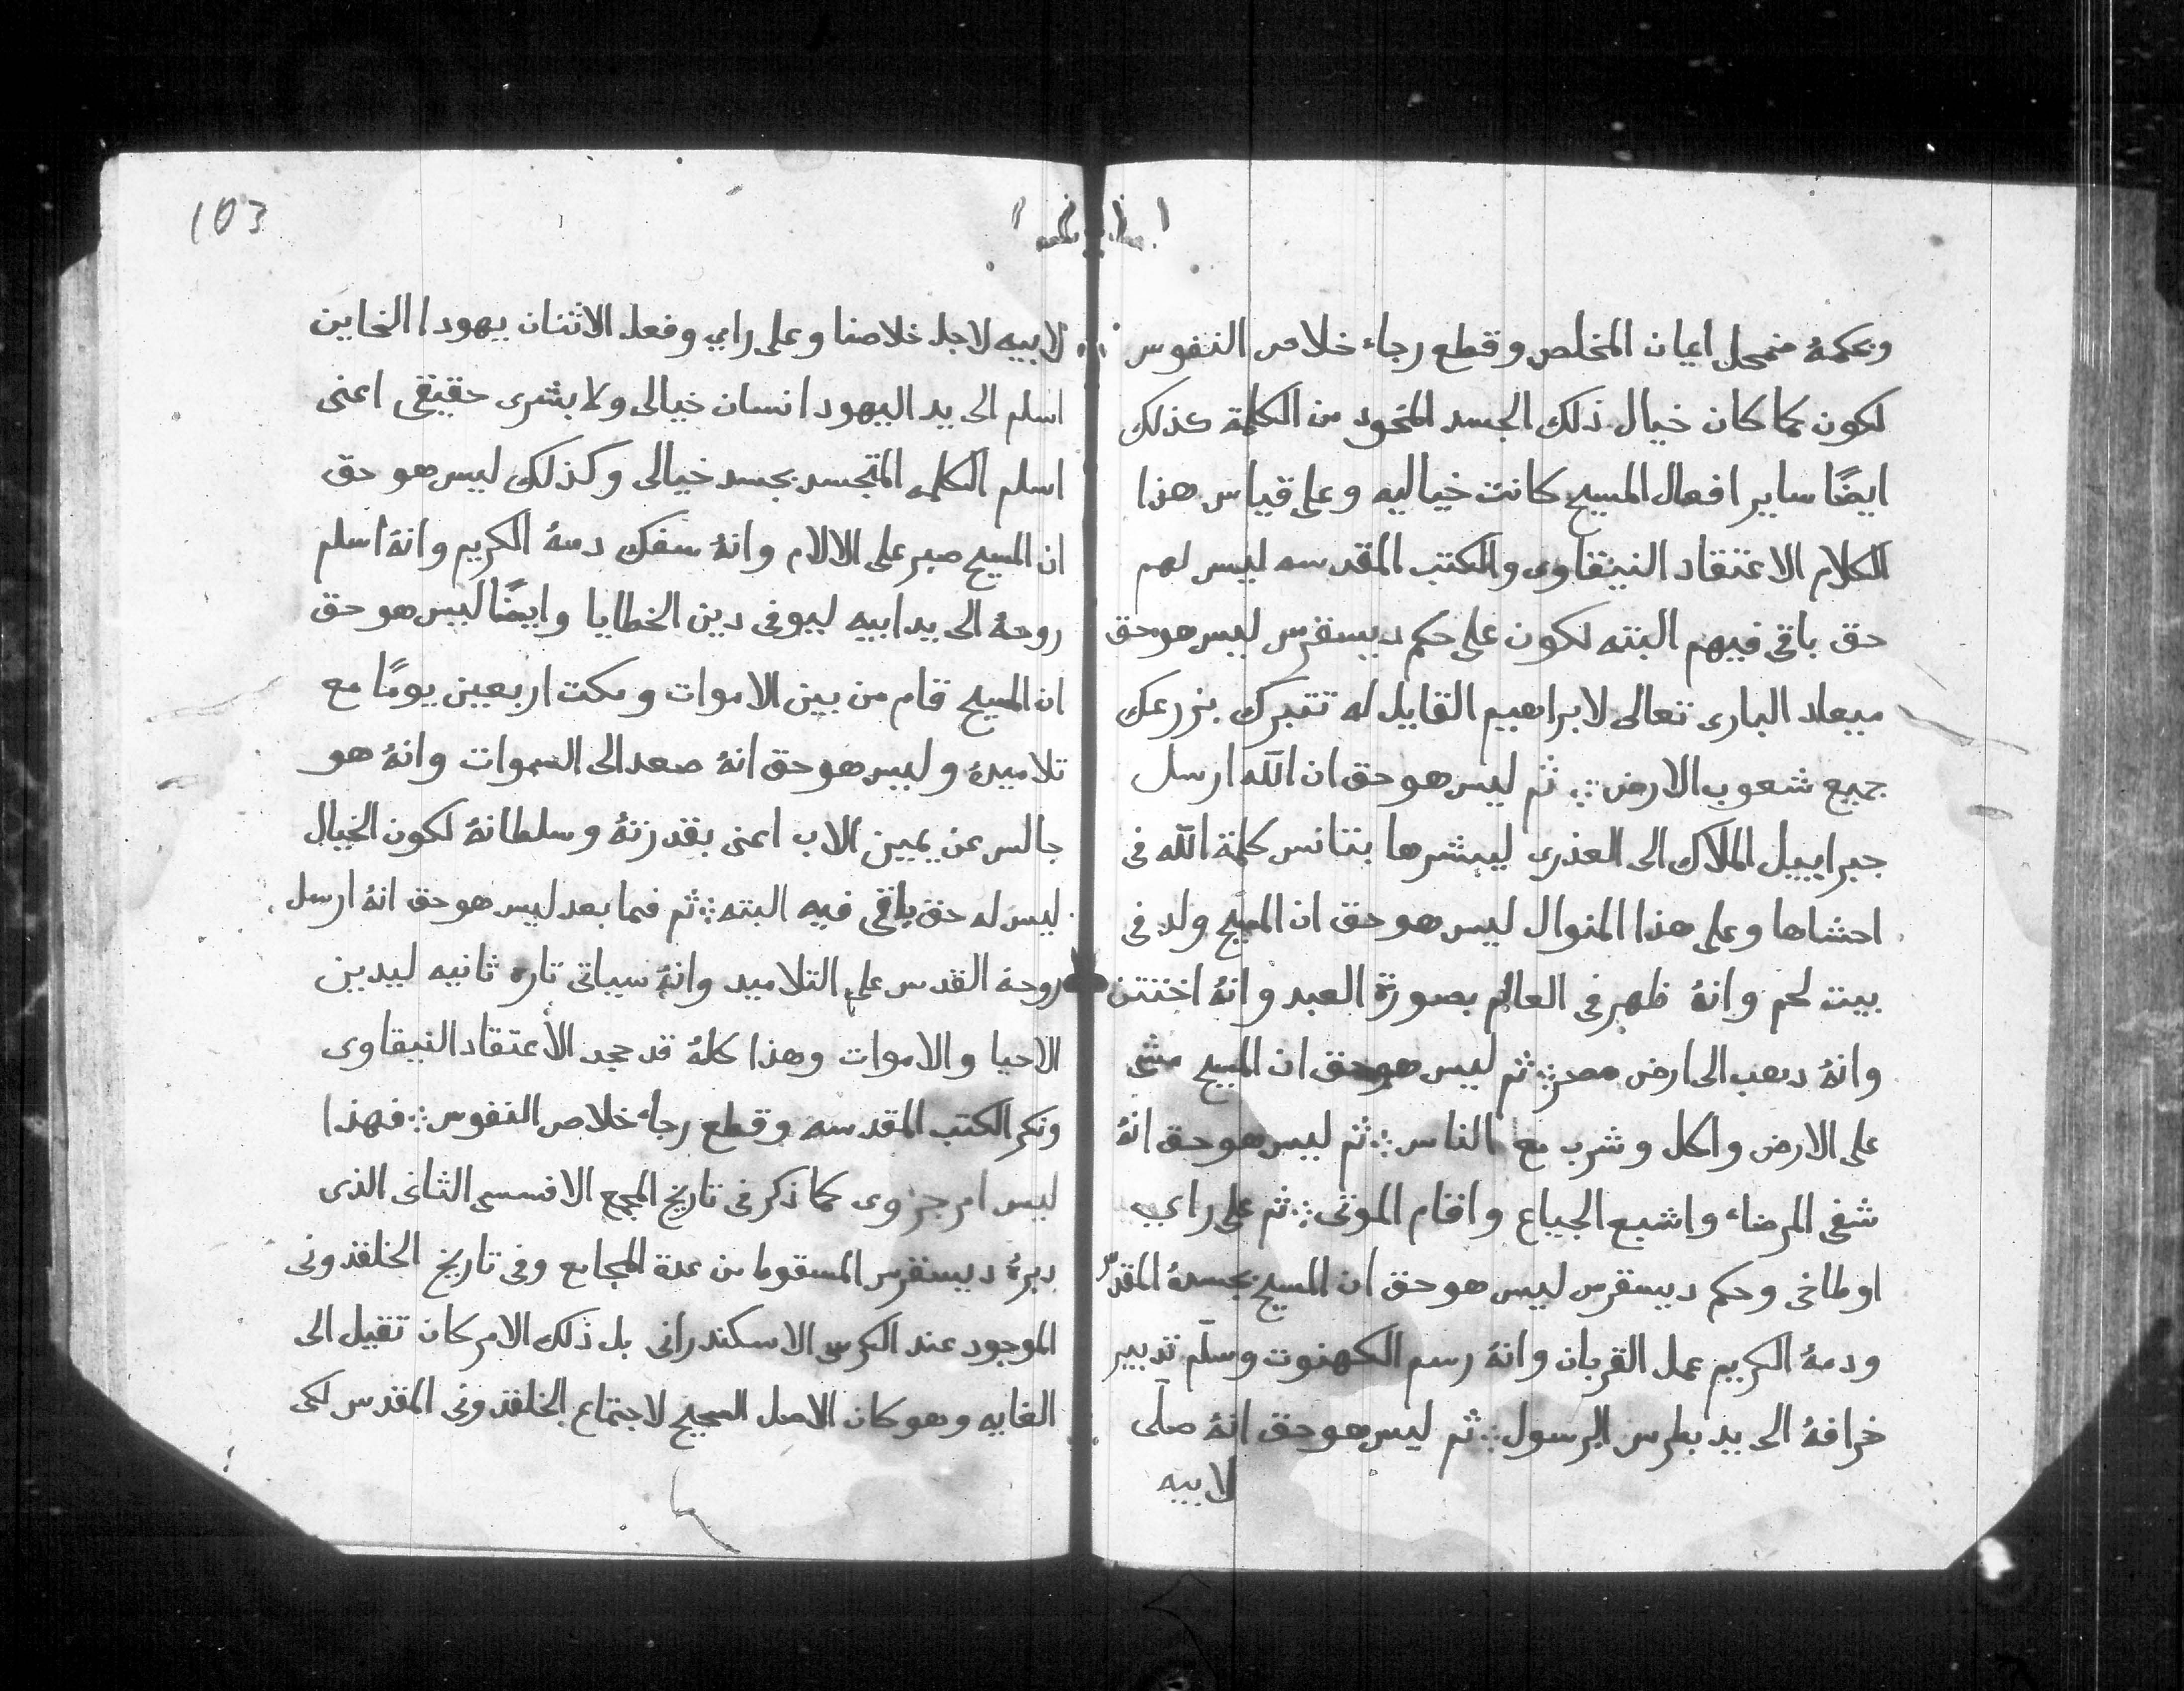 وبحكمهُ مضمحل ايمان المخلص وقطع رجاء خلاص النفوس ⁘
لكون كما كان خيال ذلك الجسد الماخود من الكلمة كذلك
ايضًا ساير افعال المسيح كانت خياليه وعلى قياس هذا
الكلام الاعتقاد النيقاوى والكتب المقدسه ليس لهم
حق باقى فيهم البته لكون على حكم ديسقرس ليس هو حق
ميعاد البارى تعالى لابراهيم القايل له تتبرك بزرعك
جميع شعوب الارض ⁘ ثم ليس هو حق ان الله ارسل
جبراييل الملاك الى العذرى ليبشرها بتانس كلمة الله فى
احشاها وعلى هذا المنوال ليس هو حق ان المسيح ولد فى
بيت لحم وانهُ ظهر فى العالم بصورة العبد وانهُ اختتن
وانهُ دهب الى ارض مصر ⁘ ثم ليس هو حق ان المسيح مشى
على الارض واكل وشرب مع الناس ⁘ ثم ليس هو حق انهُ
شفى المرضاء واشبع الجياع واقام الموتى ⁘ ثم على راي
اوطاخى وحكم ديسقرس ليس هو حق ان المسيح بجسدهُ المقدس
ودمهُ الكريم عمل القربان وانهُ رسم الكهنوت وسلّم تدبير
خرافهُ الى يد بطرس الرسول ⁘ ثم ليس هو حق انهُ صلّى
لابيه
103
لابيه لاجل خلاصنا وعلى راي وفعل الاثنان يهودا الخاين
اسلم الى يد اليهود انسان خيالى ولا بشرى حقيقى اعنى
اسلم الكلمه المتجسد بجسد خيالى وكذلك ليس هو حق
ان المسيح صبر على الالام وانهُ سفك دمهُ الكريم وانهُ اسلم
روحهُ الى يد ابيه ليوفى دين الخطايا وايضًا ليس هو حق
ان المسيح قام من بين الاموات ومكت اربعين يومًا مع
تلاميدهُ وليس هو حق انهُ صعد الى السموات وانهُ هو
جالس عن يمين الاب اعنى بقدرتهُ وسلطانهُ لكون الخيال
ليس له حق باقى فيه البته ⁘ ثم فما بعد ليس هو حق انهُ ارسل
روحه القدس على التلاميد وانهُ سياتى تاره ثانيه ليدين
الاحيا والاموات وهذا كلهُ قد جحد الاعتقاد النيقاوى
ونكر الكتب المقدسه وقطع رجاء خلاص النفوس ⁘ فهذا
ليس امر جزوى كما ذكر فى تاريخ المجمع الافسسى الثانى الذى
دبرهُ ديسقرس المسقوط من عدة المجامع وفى تاريخ الخلقدونى
الموجود عند الكرسى الاسكندرانى بل ذلك الامر كان تقيل الى
الغايه وهو كان الاصل الصحيح لاجتماع الخلقدونى المقدس لكى